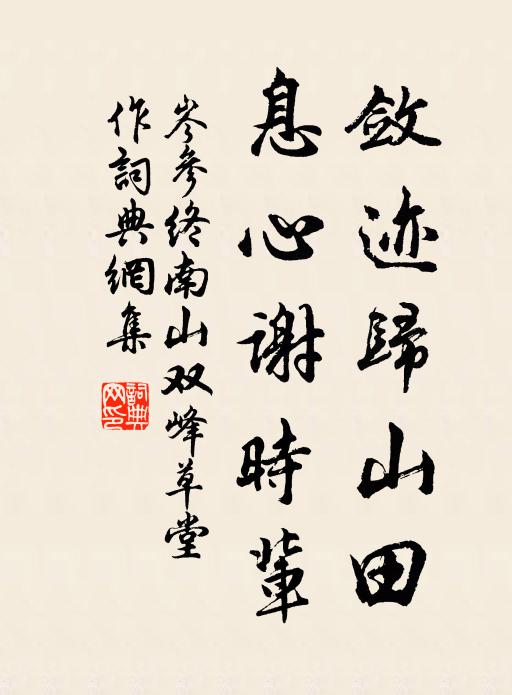 敛迹歸山田
息心謝時輩
岑參终南山双峰草堂
作詞典網集
詞典網印